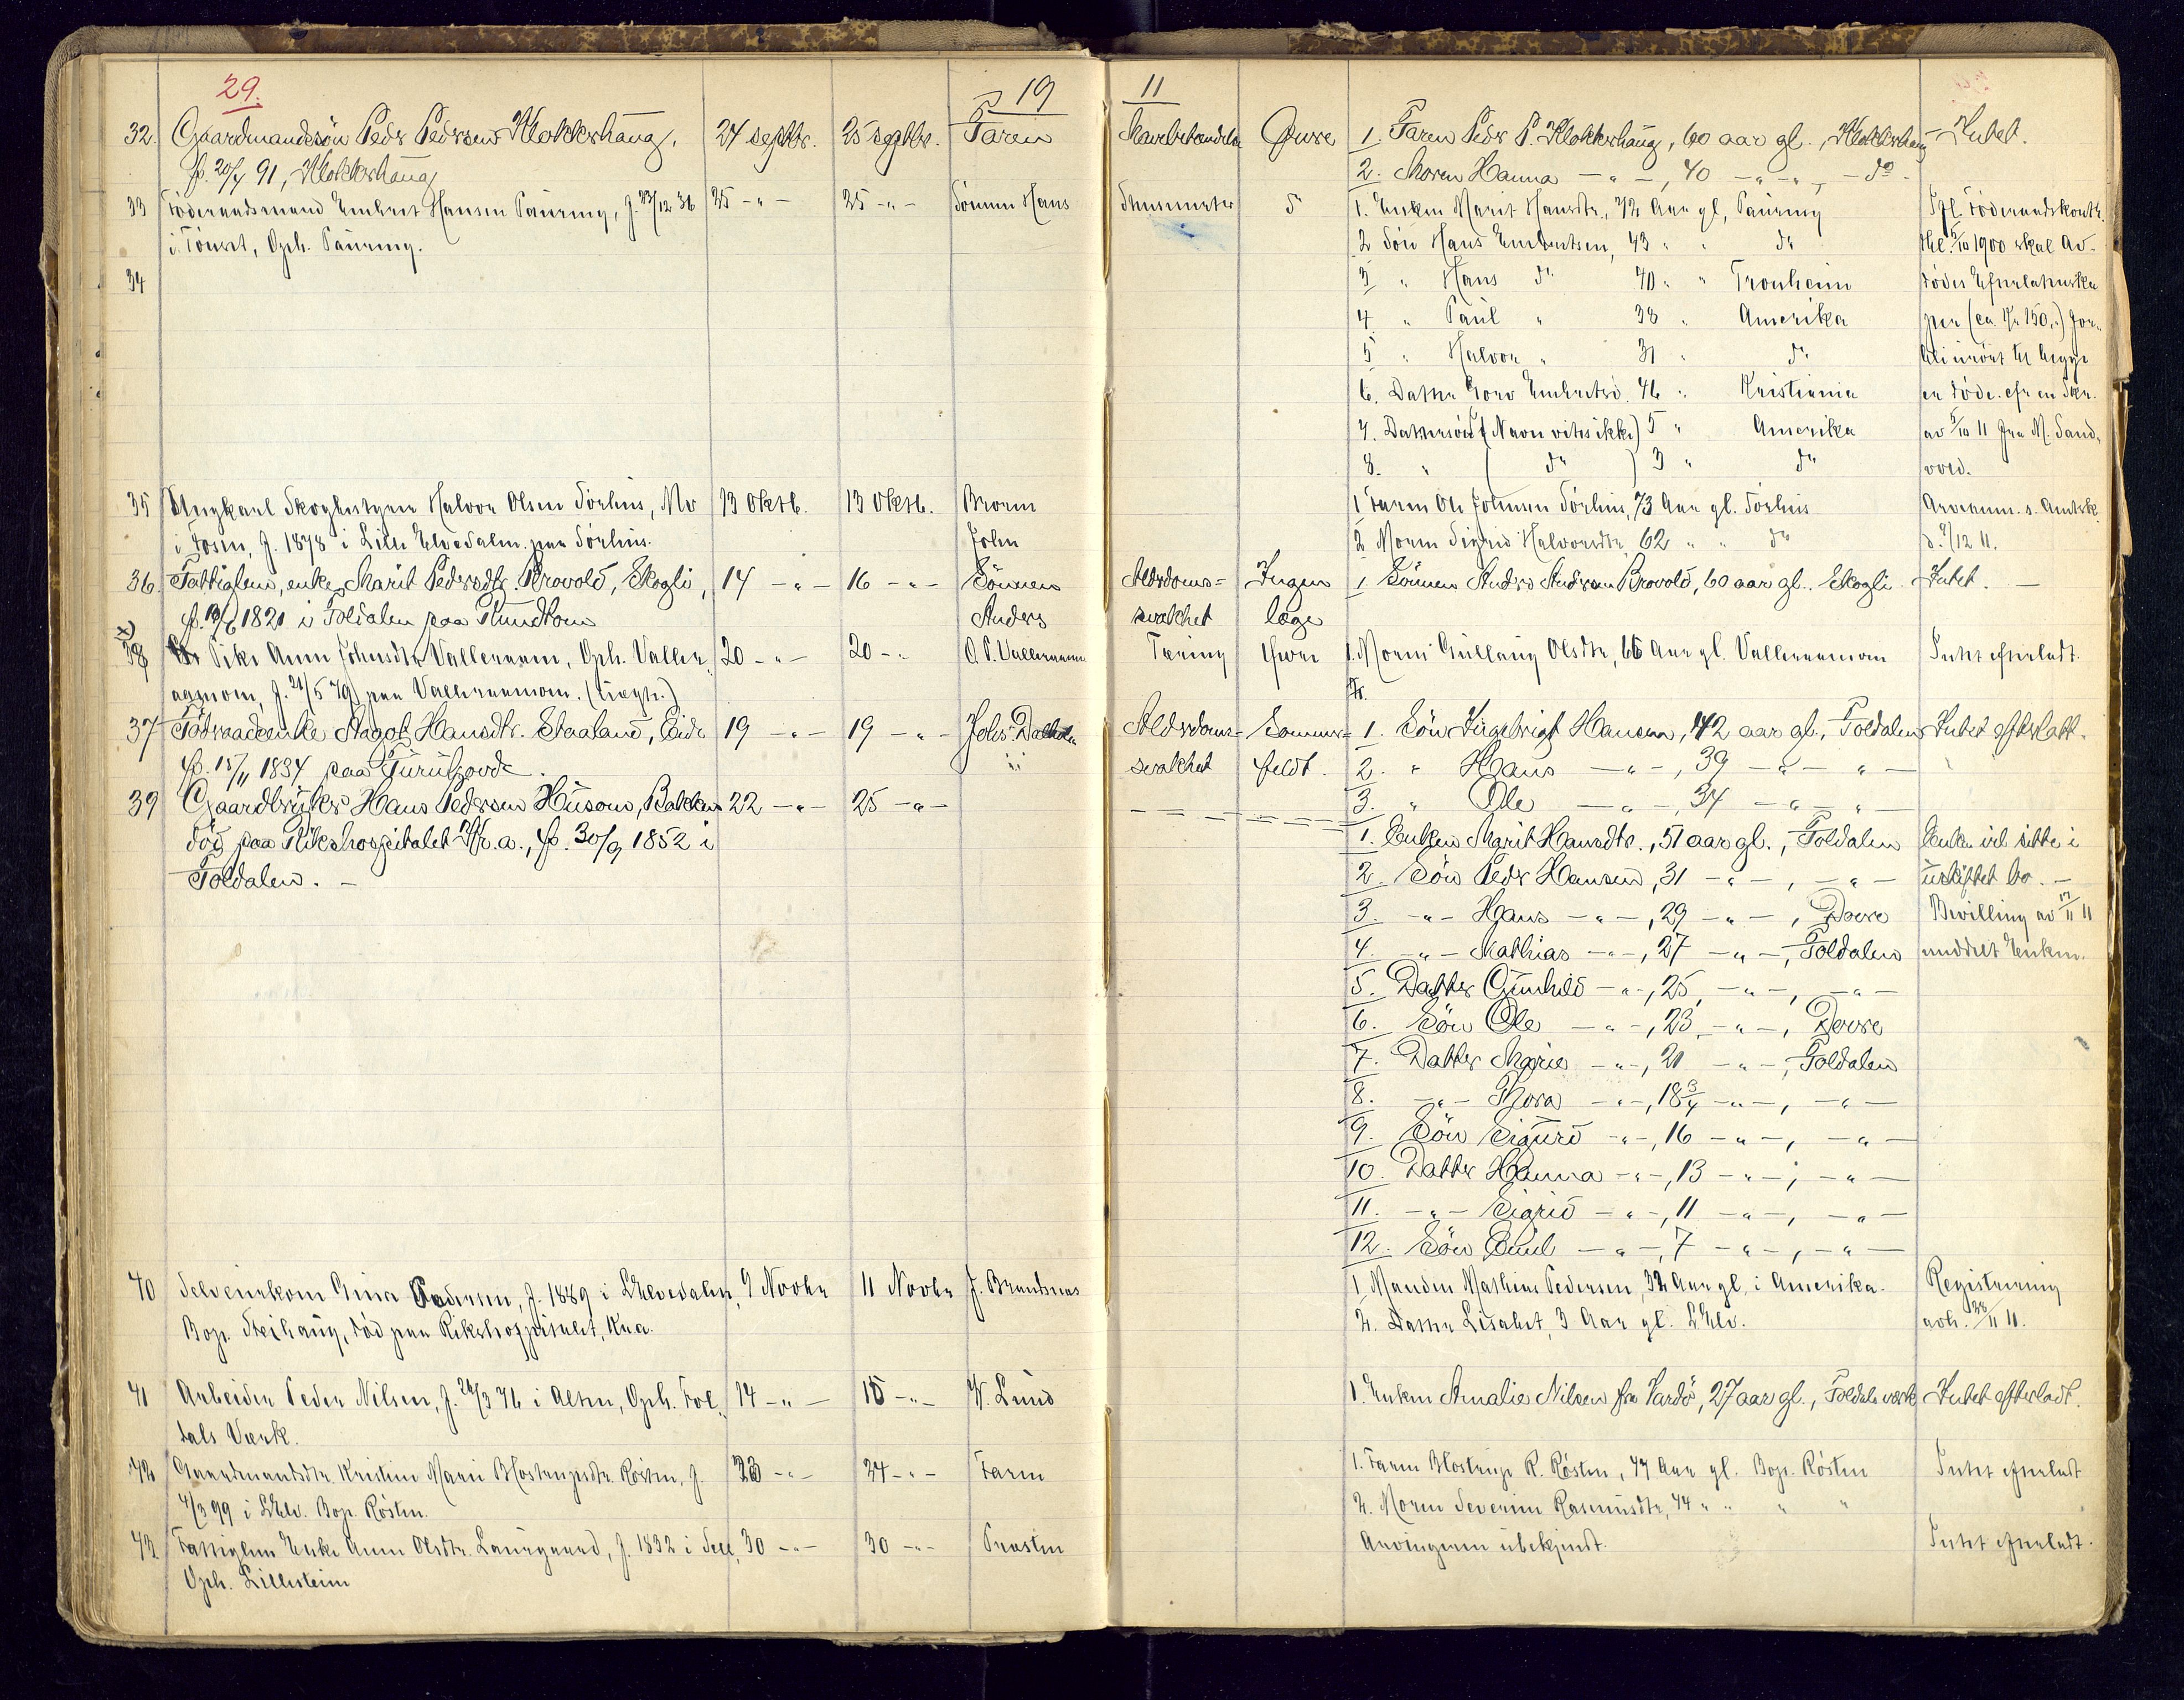 29. 19 11
32. Gaardmandssön Peder Pedersen Klokkerhaug, 24 septbr. 25 septbr. Faren Øwre 1. Faren Peder P. Klokkerhaug, 60 aar gl., Klokkerhaug Intet.
f. 20/4 91, Klokkerhaug 2. Moren Hanna — " —, 40 — " — " — do -
33 Föderaadsmand Embret Hansen Pauring, f. 23/12 36 25 - " - 25 - " - Sönnen Hans do 1. Enken Marit Hansdtr., 72 Aar gl, Pauring Ifl. Föderaadskontr.
i Tönset, Oph. Pauring. 2 Sön Hans Embretsen, 43 " " do thl. 5/10 1900 skal Av-
34 3 " Hans do 40 " " Tronheim dödes Efterlatenska
4 " Paul " 38 " Amerika per (ca. Kr 150,-) for-
5 " Halvor " 31 " do bli urört til begge
6. Datter Goro Embretsd. 46 " Kristiania er döde. efr en Skr.
7. Dattersön (Navn vites ikke) 5 " Amerika av 5/10 11 fra M. Sand-
8. " ( do ) 3 " do vold.
35 Ungkarl Skogbestyrer Halvor Olsen Sörhus, Mo 13 Oktb. 13 Oktb. Broren 1 Faren Ole Johnsen Sörhus, 73 Aar gl. Sörhus Arveanm. s. Amtsk.
i Fosen, f. 1878 i Lille Elvedalen paa Sörhus. John 2 Moren Sigrid Halvorsdtr, 62 " " do d. 9/12 11.
36. Fattiglem, enke Marit Pedersdtr. Brovold, Skogli, 14 — " — 16 — " — Sönnen Alderdoms- Ingen 1 Sönnen Anders Andersen Brovold, 60 aar gl. Skogli Intet. —
1821 i Foldalen paa Anders svakhet læge
x)
38 Pike Anne Johnsdtr Valleraaen, Oph. Valler- 20 - " - 20 - " O. P. Valleraaen Tæring Øwre 1. Moren Gullaug Olsdtr, 66 Aar gl. Valleraamoen Intet efterladt.
aamoen, f. 21/5 79 paa Valleraamoen. (Ligh.)
37 Födraadsenke Aagot Hansdtr. Staaland, Eide 19 — " — 19 — " — Johs. Dalholen Alderdoms- Sommer- 1. Sön Ingebrigt Hansen, 42 aar gl., Foldalen Intet efterlatt.
f. 15/11 1834 paa svakhet feldt. 2. " Hans — " —, 39 — " — " —
39 Gaardbruker Hans Pedersen Husom, Bakken 22 — " — 25 — " — 3. " Ole — " —, 34 — " — " —
död paa Rikshospitalet Kr.a., f. 30/9 1852 i 1. Enken Marit Hansdtr., 51 aar gl., Foldalen Enken vil sitte i
Foldalen. — 2. Sön Peder Hansen, 31 — " —, — " — uskiftet bo. —
3. — " — Hans — " —, 29 — " —, Dovre Bevilling av 17/11 11
4. — " — Mathias — " —, 27 — " —, Foldalen meddelt Enken.
5. Datter Gunhild — " —, 25 — " —, — " —
6. Sön Ole — " —, 23 — " —, Dovre
7. Datter Marie — " —, 21 — " —, Foldalen
8. — " — Thora — " —, 18 3/4 — " —, — " —
9. Sön Sigurd — " —, 16 — " —, — " —
10. Datter Hanna — " —, 13 — " —, — " —
11. — " — Sigrid — " —, 11 — " —, — " —
12. Sön Paul — " —, 7 — " —, — " —
40 Selveierkone Gina Pedersen, f. 1889 i L Elvedalen, 9 Novbr 11 Novbr J. Brandsnes 1, Manden Mathias Pedersen, 32 Aar gl, i Amerika. Registrering
Bop. Steihaug, död paa Rikshospitalet, Kra. 2. Datter Lisabet, 3 Aar gl. L Elv. avh. 28/11 11.
41 Arbeider Peder Nilsen, f. 26/3 76 i Alten, Oph. Fol- 14 — " — 15 - " - W. Lund 1. Enken Amalie Nilsen fra Vardö, 27 aar gl., Foldals verk Intet efterladt.
dals Værk.
42 Gaardmandsdtr. Kristine Marie Hostrupsdtr. Rösten, f. 23 - " - 24 - " - Faren 1. Faren Hostrup R. Rösten, 47 Aar gl. Bop. Rösten Intet efterladt
4/3 99 i L Elv. Bop. Rösten. 2. Moren Severine Rasmusdtr, 44 " " " "
43 Fattiglem Enke Anne Olsdtr. Laurgaard, f. 1832 i Sel, 30 - " - 30 - " - Presten Arvingerne ubekjendt. Intet efterladt.
Oph. Lillesteien